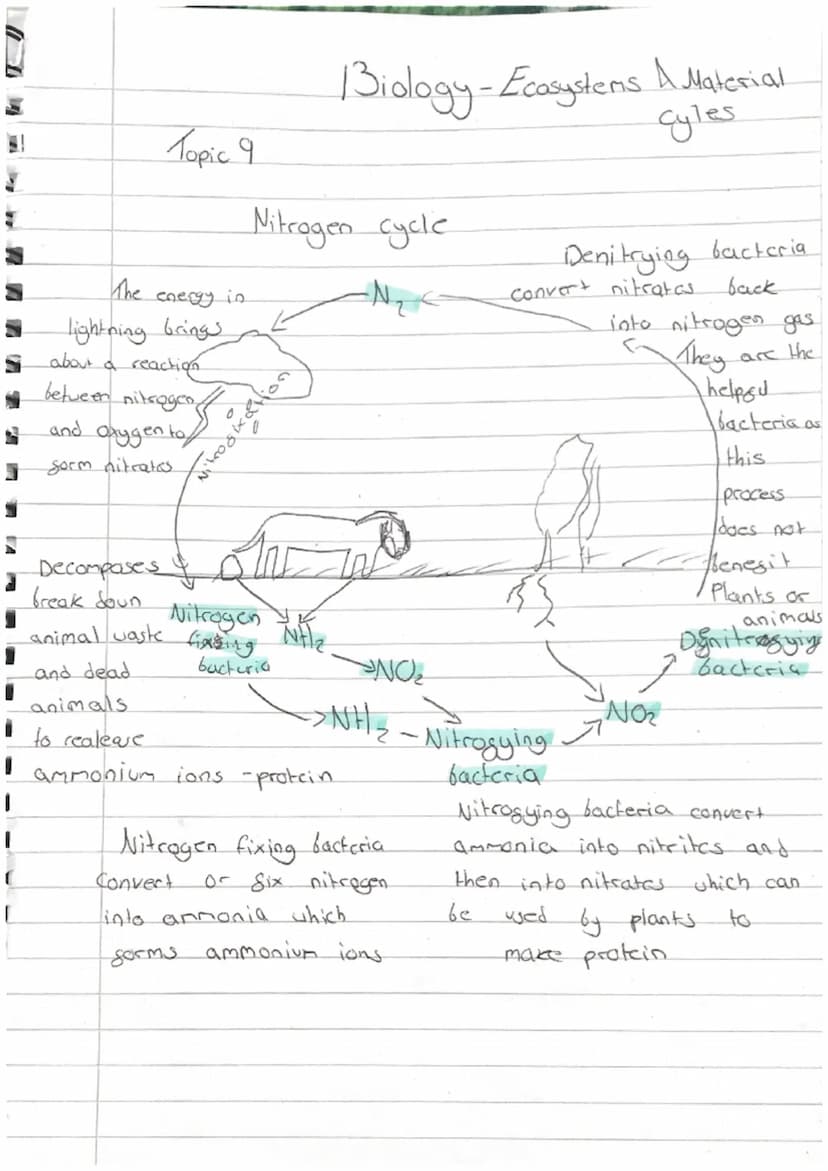 Biology - Ecosystems & Material
cyles
Topic 9
Nitrogen cycle
The energy in
lightning brings
about a reaction
between nitrogen
and oxygen to
form nitrates
N₂
Denitrying bacteria
convert nitrates back
into nitrogen gas
They are the
helpful
bacteria as
this
process
does not
benefit
Plants or
animals
Decompases
break down
animal waste
and dead
animals
to realease
ammonium ions - protein
Nitrogen
fixing
bacteria
NH₂
NO₂
NH₂ - Nitrofying
bacteria
NO₂
Denitrofying
bacteria
Nitrogen fixing bacteria
convert or fix nitrogen
into ammonia which
forms ammonium ions
Nitrofying bacteria convert
ammonia into nitrites and
then into nitrates which can
be used by plants to
make protein